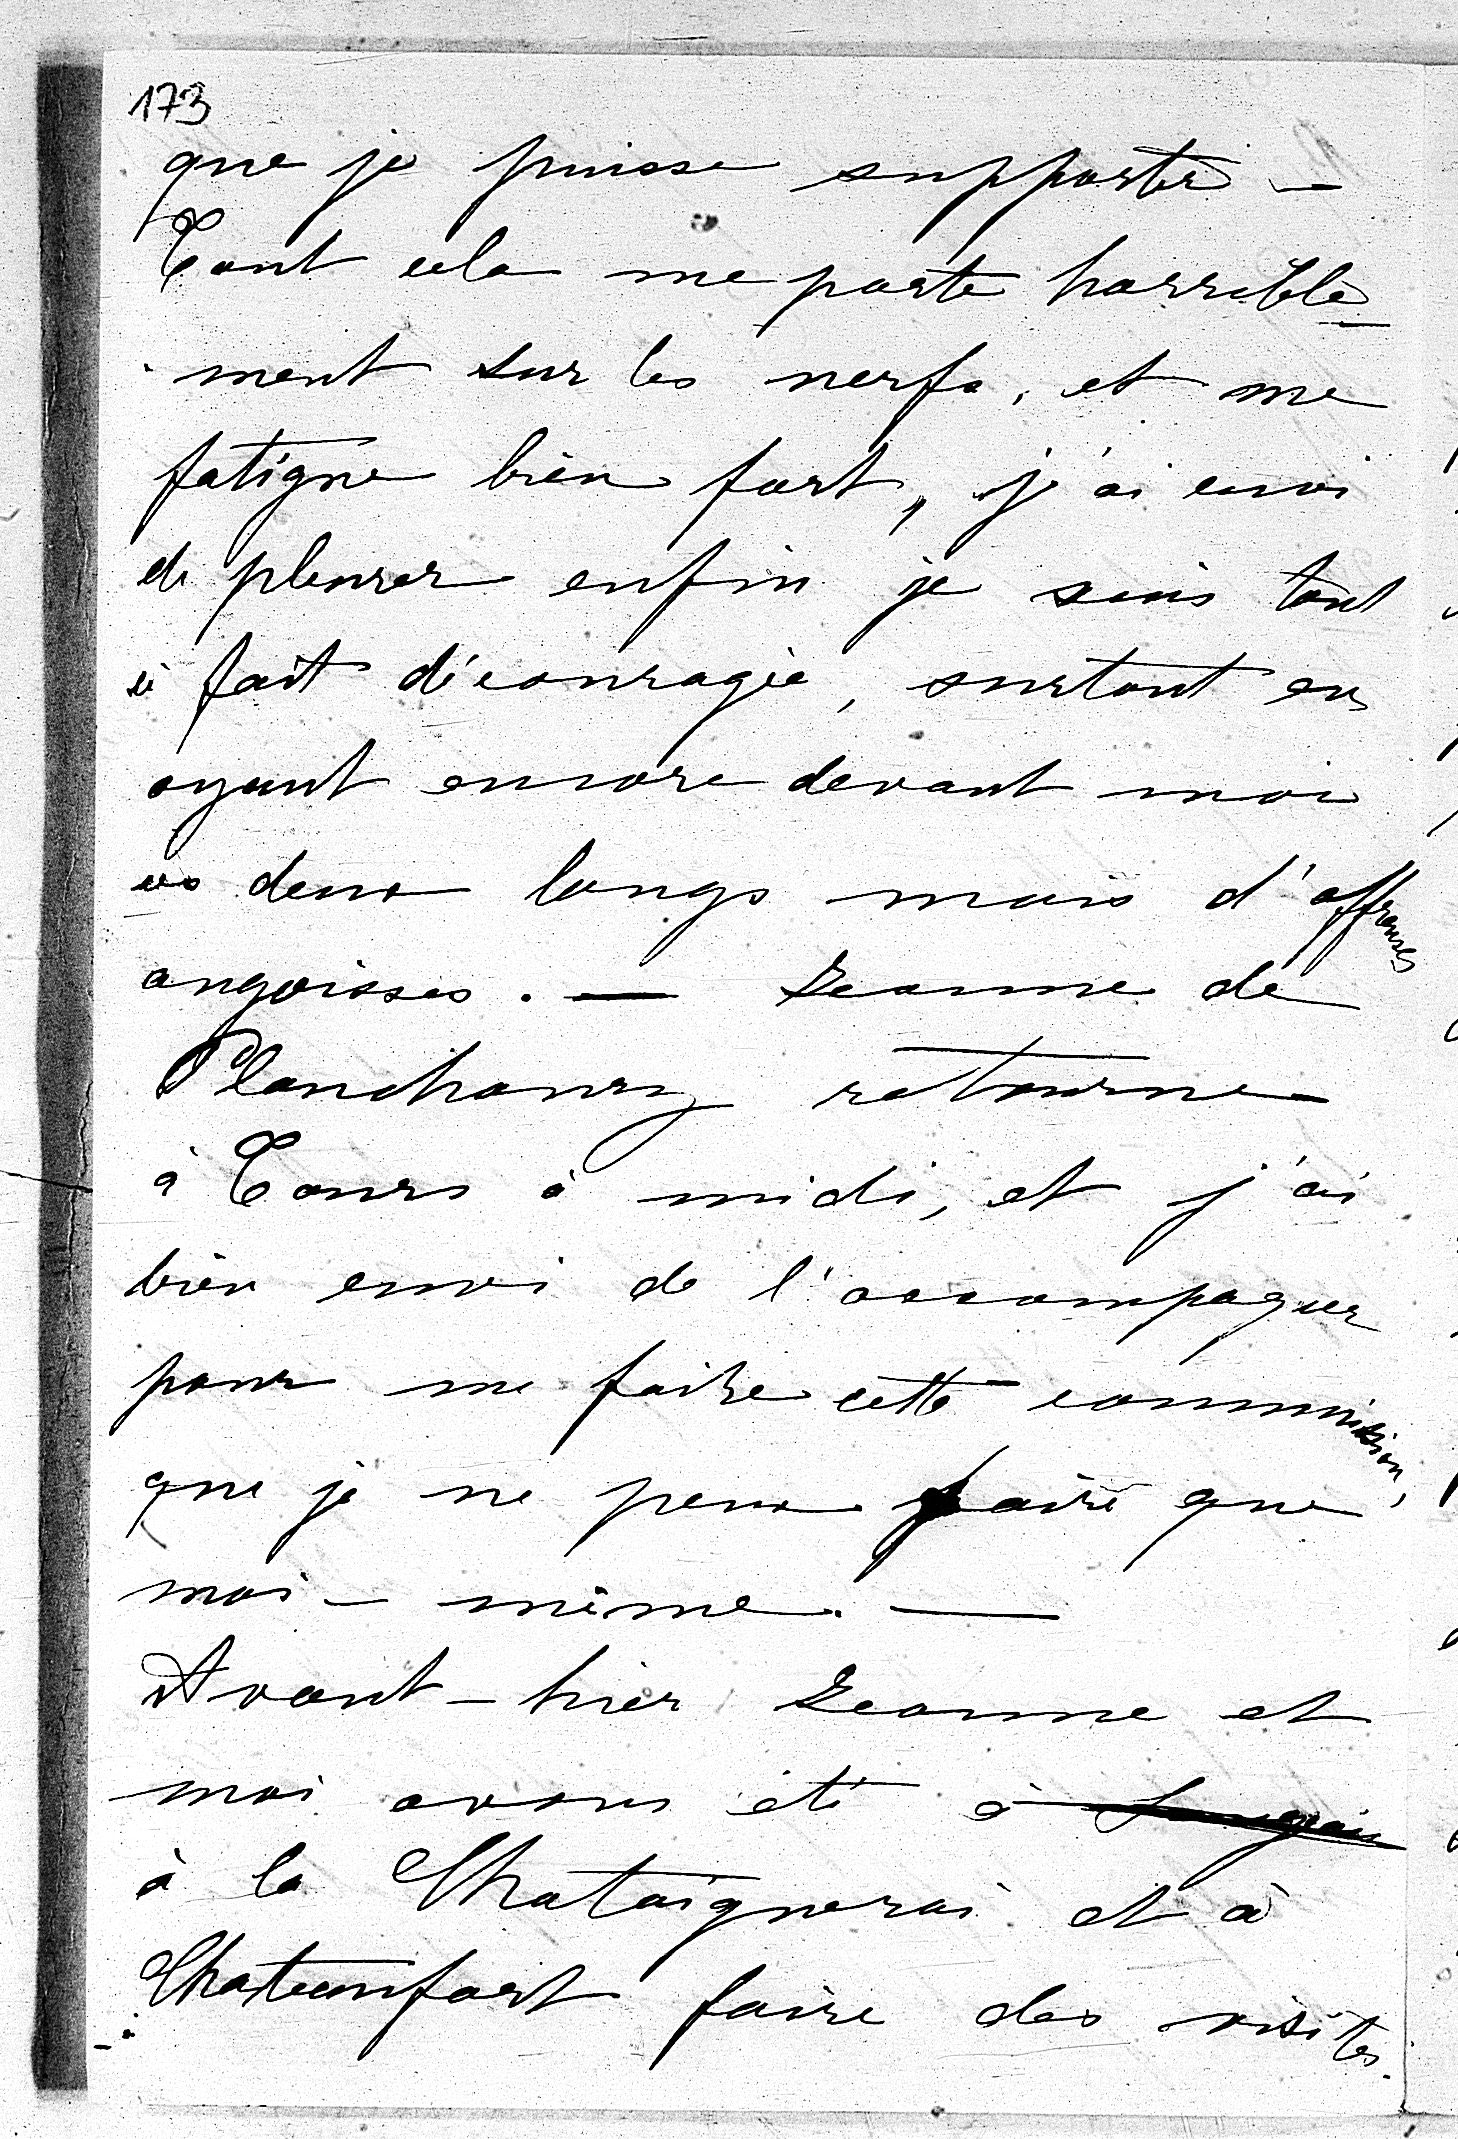 173
que je puisse supporter —
Tout cela me porte horrible
ment sur les nerfs, et me
fatigue bien fort, j'ai envi
de pleurer enfin je suis tout
à fait découragée, surtout en
ayant encore devant moi
ces deux longs mois d'affreuses
angoisses. — Jeanne de
Planchoury retourne
à Tours à midi, et j'ai
bien envi de l'accompagner
pour me faire cette commission,
que je ne peux faire que
moi-même. —
Avant-hier Jeanne et
moi avons été à Langeais
à la Chataignerai et à
Chateaufort faire des visites.